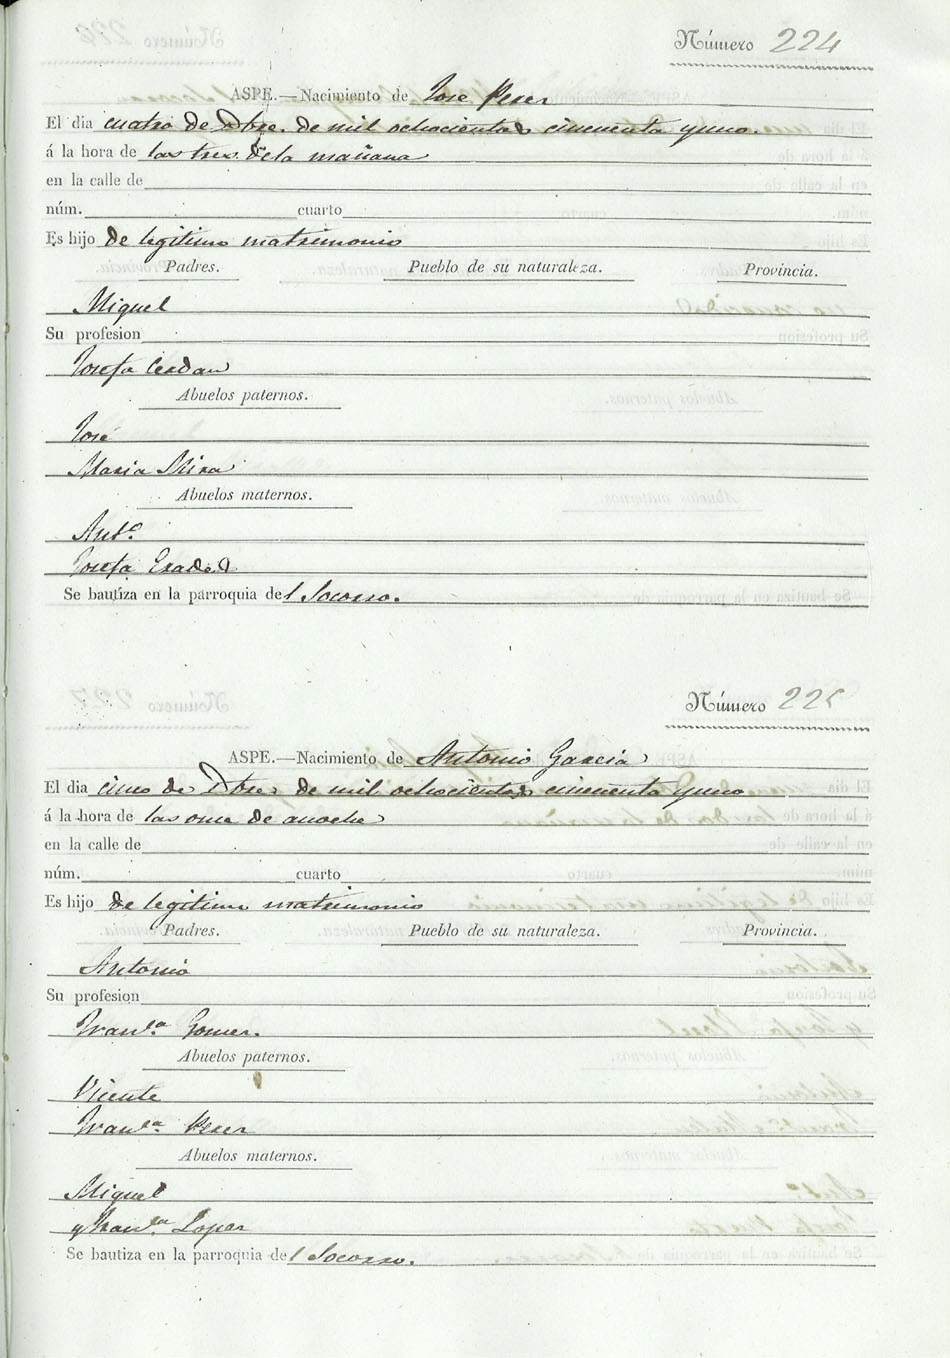 Número 224
ASPE.—Nacimiento de José Perer
El dia cuatro de Dbre. de mil ochocientos cincuenta y uno.
á la hora de las tres de la mañana
en la calle de
núm. cuarto
Es hijo de legitimo matrimonio
Padres. Pueblo de su naturaleza. Provincia.
Miguel
Su profesion
Josefa Cerdan
Abuelos paternos.
José
Maria Mira
Abuelos maternos.
Antº
Josefa
Se bautiza en la parroquia del Socorro.
Número 225
ASPE.—Nacimiento de Antonio Garcia
El dia cinco de Dbre de mil ochocientos cincuenta y uno
á la hora de las once de anoche
en la calle de
núm. cuarto
Es hijo de legitimo matrimonio
Padres. Pueblo de su naturaleza. Provincia.
Antonio
Su profesion
Franca Gomer.
Abuelos paternos.
Vicente
Franca Perer
Abuelos maternos.
Miguel
y Franca Loper
Se bautiza en la parroquia del Socorro.